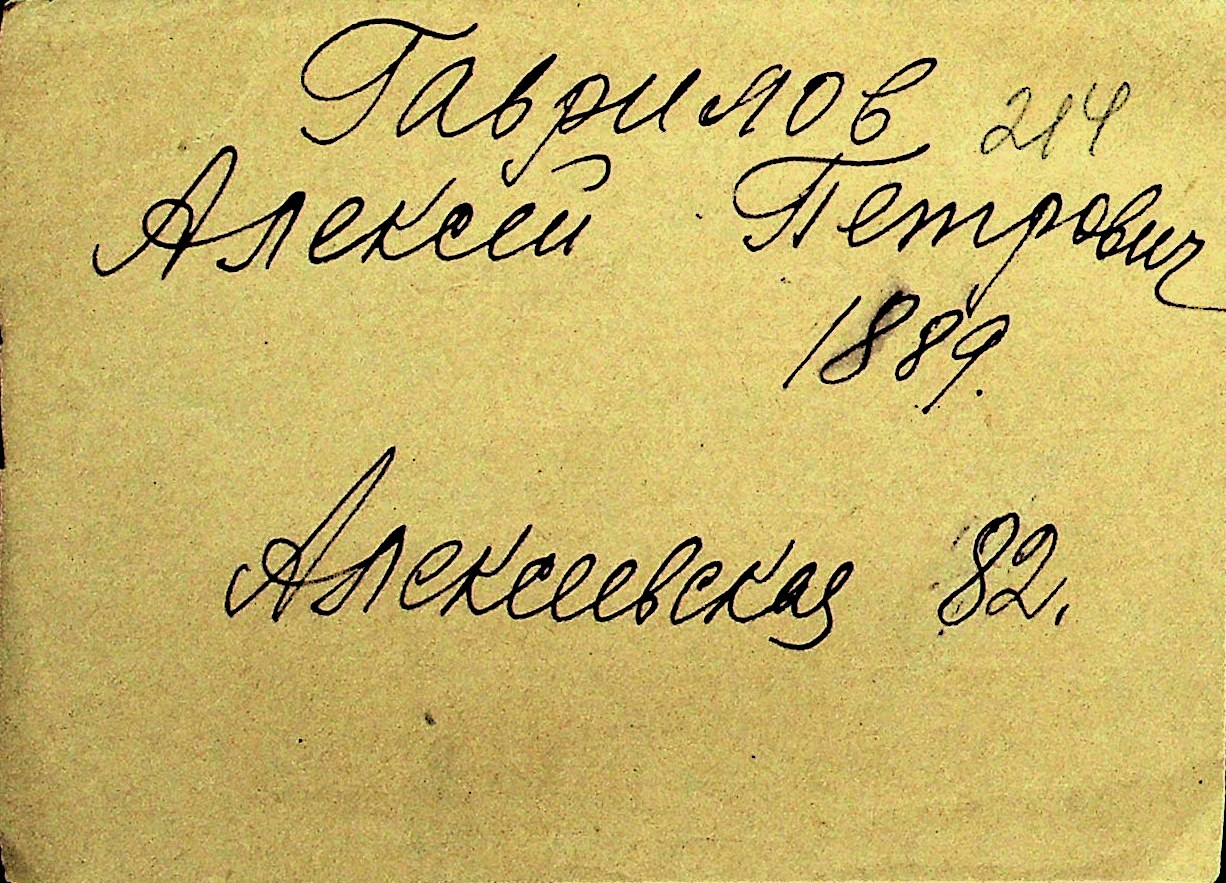 Гаврилов 214
Алексей Петрович
1889.
Алексеевская 82.